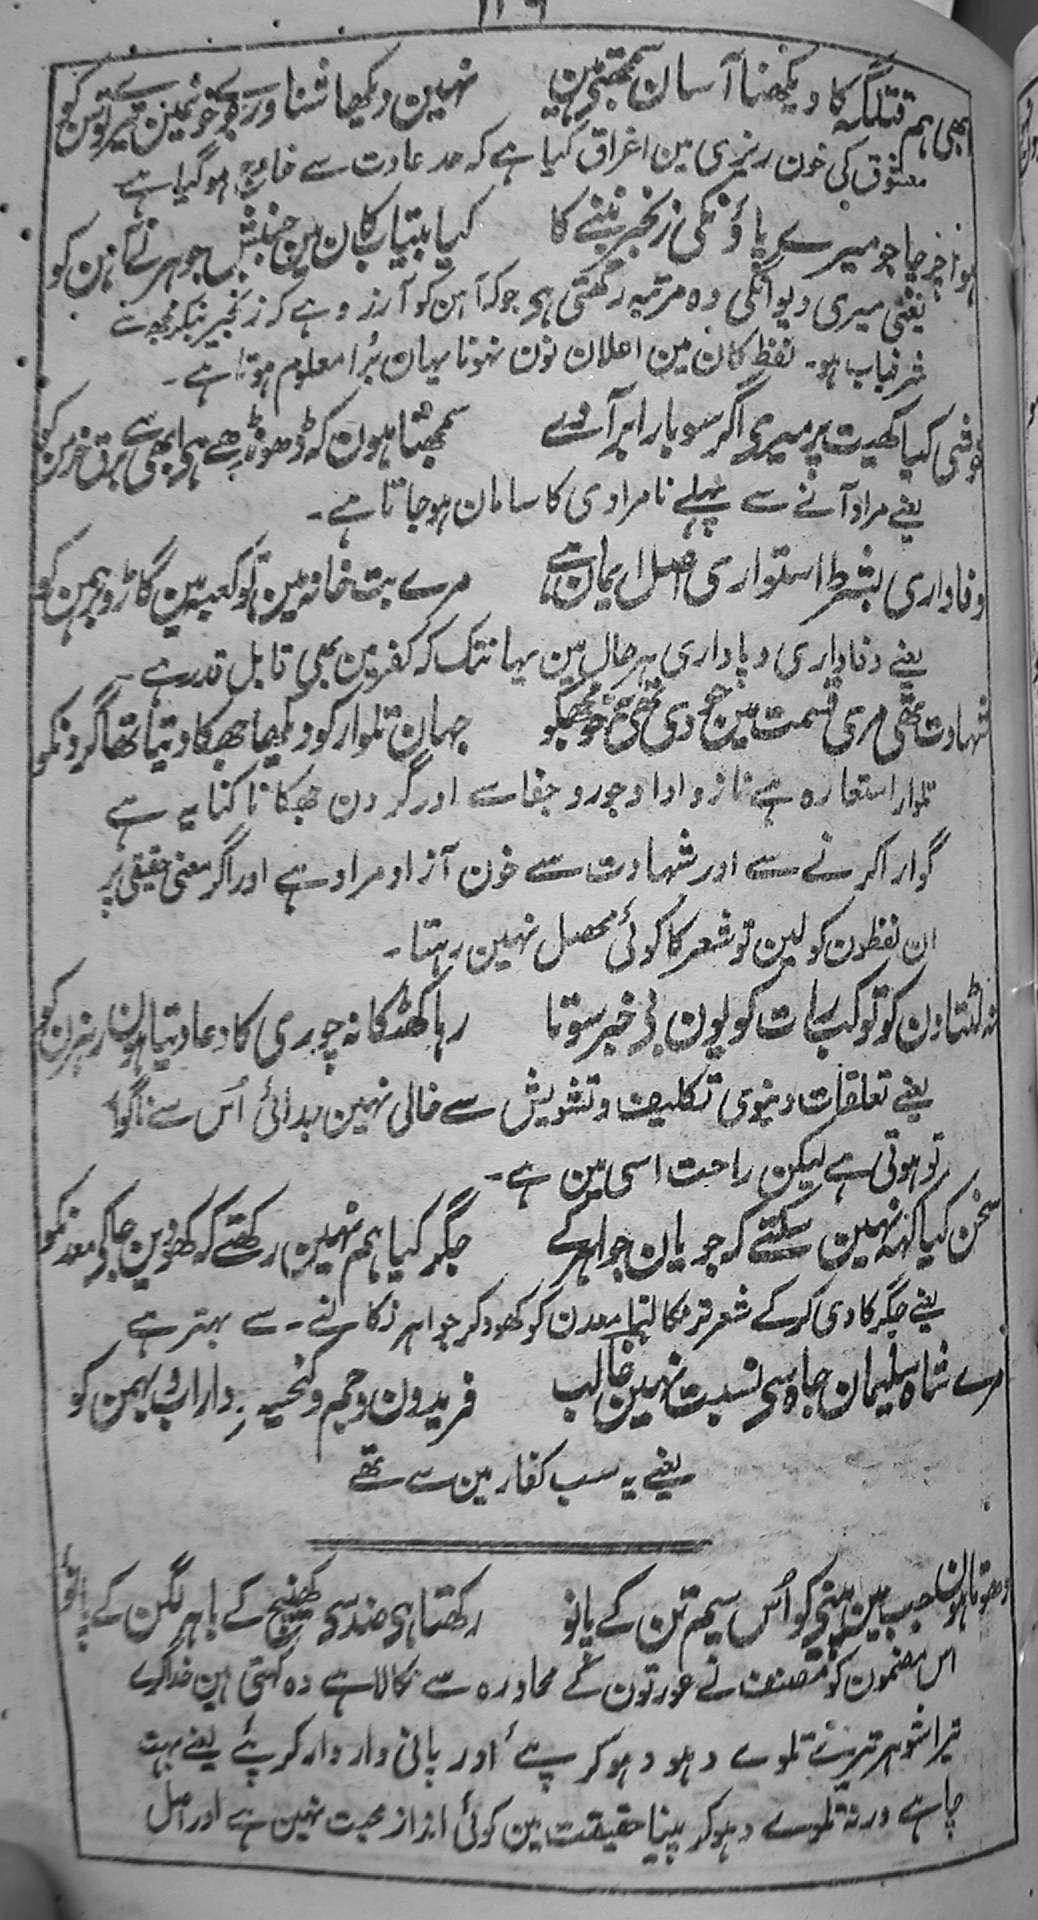 ابھی ہم قتلگہ کا دیکھنا آسان سمجھتے ہین نہین دیکھا شناور جوے خون مین تیرے توسن کو
معشوق کی خون ریزی مین اغراق کیا ہے کہ حد عادت سے خارج ہو گیا ہے۔
ہوا چرچا جو میرے پاؤنکی زنجیر بننے کا کیا بیتاب کان مین جنبش جوہر نے آہن کو
یعنی میری دیوانگی وہ مرتبہ رکھتی ہی جو کہ آہن کو آرزو ہے کہ زنجیر بنکر مجھ سے
شرفیاب ہو۔ لفظ کان مین اعلان نون نہونا یہان بُرا معلوم ہوتا ہے۔
خوشی کیا کھیت پر میری اگر سو بار ابر آوے سمجھتا ہون کہ ڈھونڈھے ہی ابھی سے برق خرمن کو
یعنے مراد آنے سے پہلے نامرادی کا سامان ہو جاتا ہے۔
وفاداری بشرط استواری اصل ایمان ہے مرے بت خانہ مین تو کعبہ مین گاڑو برہمن کو
یعنے وفاداری و پاداری ہر حال مین یہانتک کہ کفر مین بھی قابل قدر ہے۔
شہادت تھی مری قسمت مین جو دی تھی یہ خو مجھکو جہان تلوار کو دیکھا جھکا دیتا تھا گردنکو
تلوار استعارہ ہے ناز و ادا و جور و جفا سے اور گردن جھکانا کنایہ ہے
گوارا کرنے سے اور شہادت سے خون آزاد مراد ہے اور اگر معنی حقیقی پر
ان لفظون کو لین تو شعر کا کوئی محصل نہین رہتا۔
نہ لٹتا دن کو تو کب رات کو یون بی خبر سوتا رہا کھٹکا نہ چوری کا دعا دیتا ہون رہزن کو
یعنے تعلقات دنیوی تکلیف و تشویش سے خالی نہین جدائی اُس سے ناگوار
تو ہوتی ہے لیکن راحت اسی مین ہے۔
سخن کیا کہہ نہین سکتے کہ جویان جواہر کے جگر کیا ہم نہین رکھتے کہ کھودین جاکے معدنکو
یعنے جگر کاوی کرکے شعر تر نکالنا معدن کو کھود کر جواہر نکالنے۔ سے بہتر ہے
مرے شاہ سلیمان جاہ سی نسبت نہین غالب فریدون و جم و کیخسرو داراب و بہمن کو
یعنے یہ سب کفار مین سے تھے
دھوتا ہون جب مین پینے کو اُس سیم تن کے پانو رکھتا ہی ضد سی کھینچ کے باہر لگن کے پانو
اس مضمون کو مصنف نے عورتون کے محاورہ سے نکالا ہے وہ کہتی ہین خدا کرے
تیرا شوہر تیرے تلوے دھو دھو کر پئے اور پانی وار وار کر پئے یعنے بہت
چاہے ورنہ تلوے دہو کر پینا حقیقت مین کوئی انداز محبت نہین ہے اور اصل